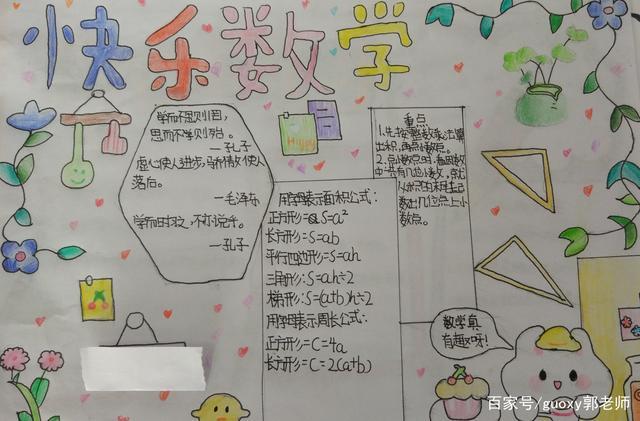 快乐数学
学而不思则罔，
思而不学则殆。
—孔子
虚心使人进步，骄傲使人
落后。
—毛泽东
学而时习之，不亦说乎。
—孔子
Happy
用字母表示面积公式：
正方形=S=a²
长方形=S=ab
平行四边形=S=ah
三角形：S=ah÷2
梯形：S=(a+b)h÷2
用字母表示周长公式：
正方形=C=4a
长方形=C=2(a+b)
重点
1.先按整数乘法算
出积，再点小数点。
2.点小数点时，看因数
中一共有几位小数，就
从积的右边起
数出几位点上小
数点。
数学真
有趣呀！
百家号/guoxy郭老师